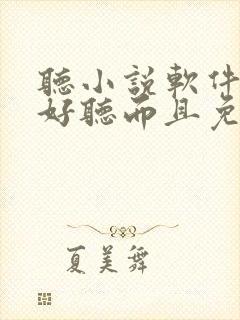 聽小說軟件
好聽而且免
夏美舞